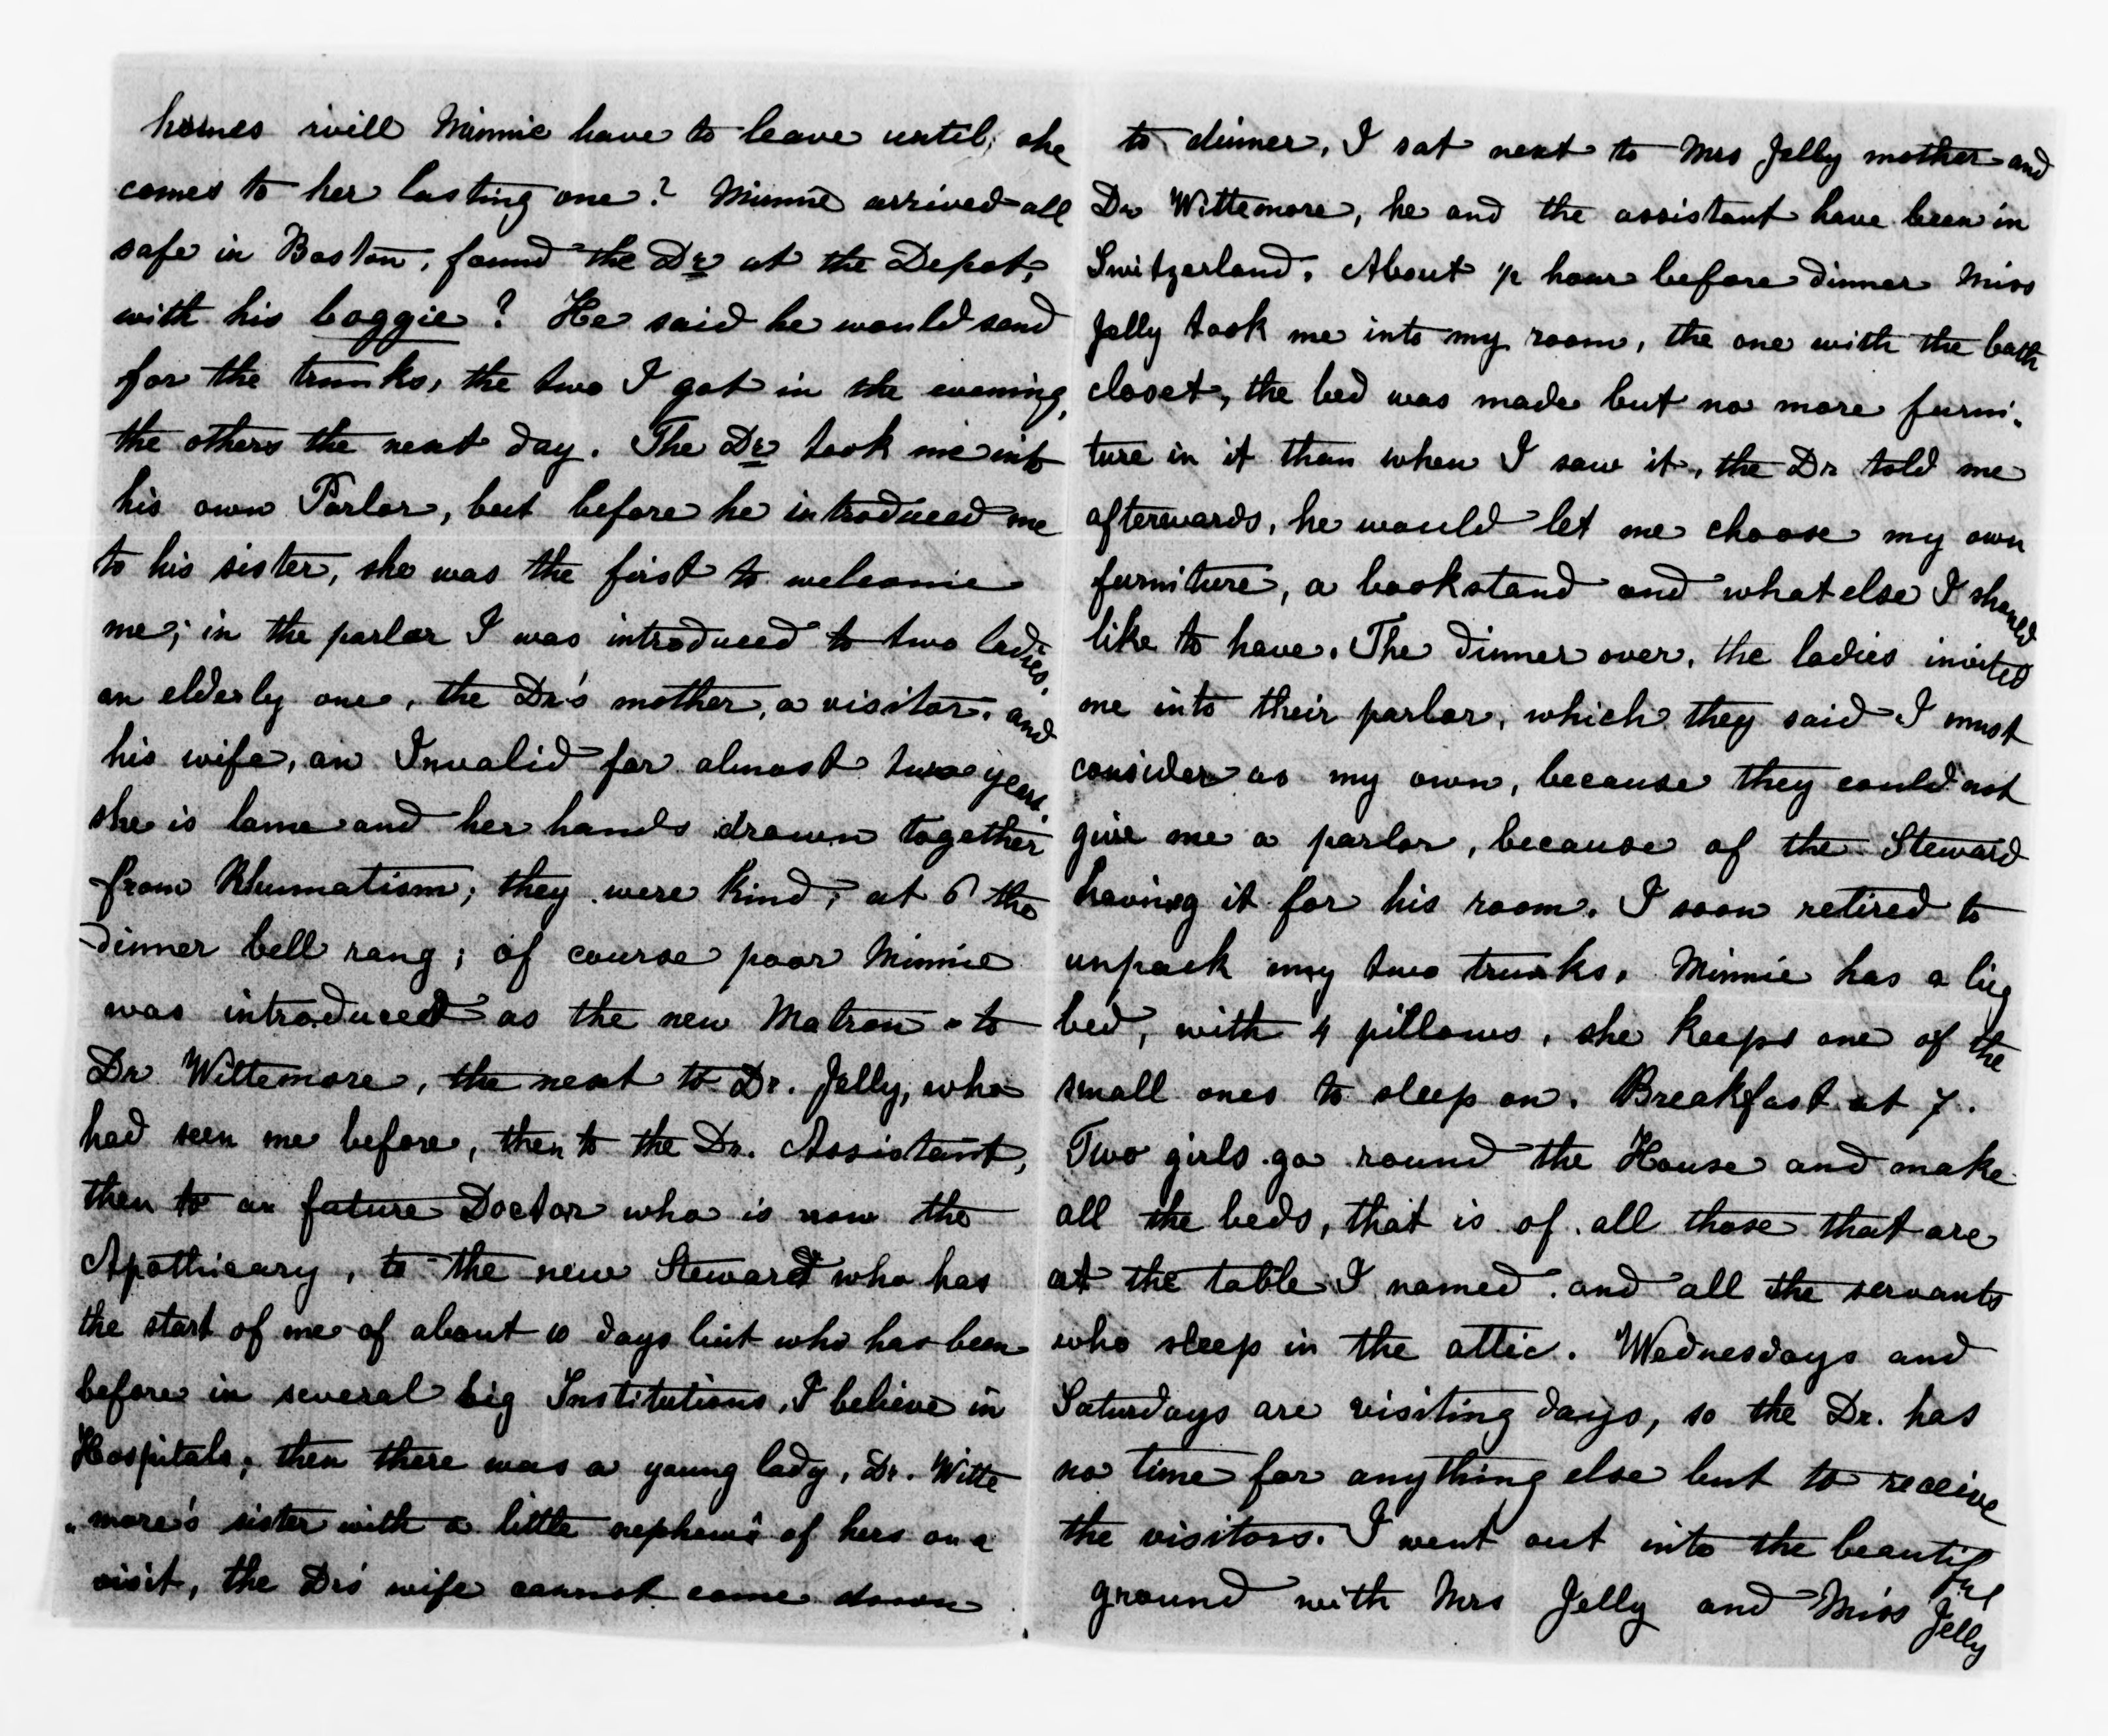 homes will Minnie have to leave until, she
comes to her lasting one? Minnie arrived all
safe in Boston, found the Dr at the Depot,
with his boggie? He said he would send
for the trunks, the two I got in the evening,
the others the next day. The Dr took me into
his own Parlor, but before he introduced me
to his sister, she was the first to welcome
me; in the parlor I was introduced to two ladies.
an elderly one, the Dr's mother, a visitor. and
his wife, an Invalid for almost two years.
she is lame and her hands drawn together
from Rhumatism; they were kind; at 6 the
dinner bell rang; of course poor Minnie
was introduced as the new Matron to
Dr Wittemore, the next to Dr. Jelly, who
had seen me before, then to the Dr. Assistant,
then to an future Doctor who is now the
Apothicary, to the new Steward who has
the start of me of about 10 days but who has been
before in several big Institutions, I believe in
Hospitals; then there was a young lady, Dr. Witte
"more's sister with a little nephew of hers on a
visit, the Drs' wife cannot come down
to dinner, I sat next to Mrs Jelly mother and
Dr Wittemore, he and the assistant have been in
Switzerland. About 1/2 hour before dinner Miss
Jelly took me into my room, the one with the bath
closet, the bed was made but no more furni-
ture in it than when I saw it, the Dr told me
afterwards, he would let me choose my own
furniture, a bookstand and what else I should
like to have. The dinner over, the ladies invited
me into their parlor, which they said I must
consider as my own, because they could not
give me a parlor, because of the Steward
having it for his room. I soon retired to
unpack my two trunks. Minnie has a big
bed, with 4 pillows, she keeps one of the
small ones to sleep on. Breakfast at 7.
Two girls go round the House and make
all the beds, that is of all those that are
at the table I named. and all the servants
who sleep in the attic. Wednesdays and
Saturdays are visiting days, so the Dr. has
no time for anything else but to receive
the visitors. I went out into the beautiful
ground with Mrs Jelly and Miss Jelly